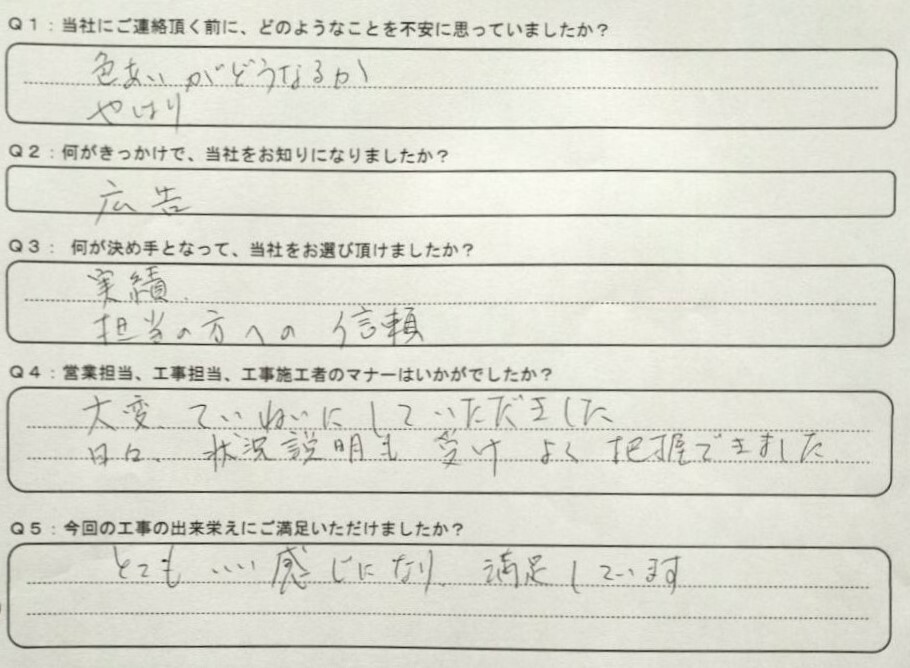 Q1：当社にご連絡頂く前に、どのようなことを不安に思っていましたか？
色あいがどうなるか
やはり
Q2：何がきっかけで、当社をお知りになりましたか？
広告
Q3： 何が決め手となって、当社をお選び頂けましたか？
実績、
担当の方への信頼
Q4：営業担当、工事担当、工事施工者のマナーはいかがでしたか？
大変、ていねいにしていただきました
日々、状況説明も受けよく把握できました
Q5：今回の工事の出来栄えにご満足いただけましたか？
とてもいい感じになり、満足しています